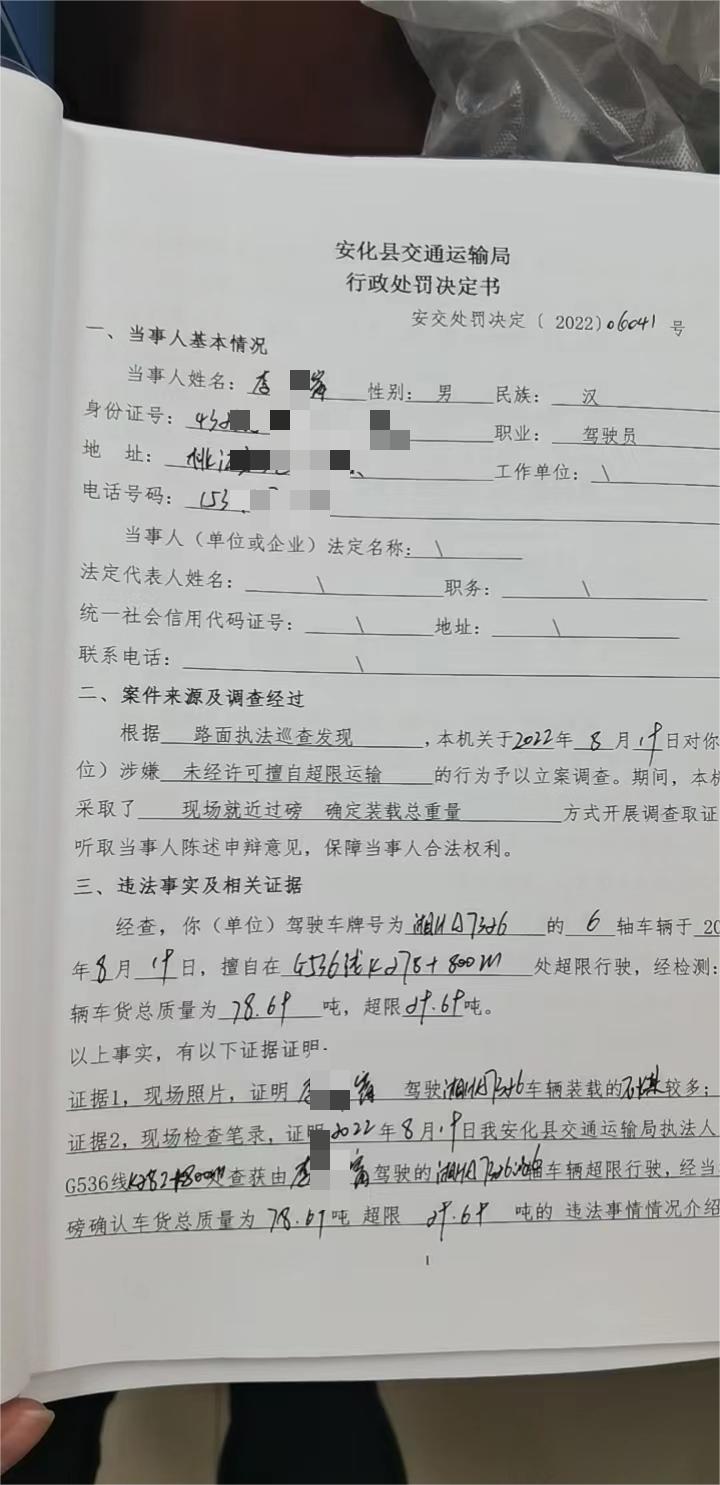 安化县交通运输局
行政处罚决定书
安交处罚决定〔2022〕06041号
一、当事人基本情况
当事人姓名：李 富 性别： 男 民族： 汉
身份证号： 43 职业： 驾驶员
地 址： 桃江 工作单位： \
电话号码： 153
当事人（单位或企业）法定名称： \
法定代表人姓名： \ 职务： \
统一社会信用代码证号： \ 地址： \
联系电话： \
二、案件来源及调查经过
根据 路面执法巡查发现 ，本机关于2022年 8 月 19日对你
位）涉嫌 未经许可擅自超限运输 的行为予以立案调查。期间，本机
采取了 现场就近过磅 确定装载总重量 方式开展调查取证
听取当事人陈述申辩意见，保障当事人合法权利。
三、违法事实及相关证据
经查，你（单位）驾驶车牌号为 湘HA7326 的 6 轴车辆于 20
年8月 19日，擅自在 G536线K278+800m 处超限行驶，经检测：
辆车货总质量为 78.69 吨，超限29.69吨。
以上事实，有以下证据证明.
证据1，现场照片，证明 李 富 驾驶湘HA7326车辆装载的 较多；
证据2，现场检查笔录，证明2022年8月19日我安化县交通运输局执法人
G536线K282+800m处查获由李 富驾驶的湘HA7326 车辆超限行驶，经当
磅确认车货总质量为 78.69吨 超限 29.69 吨的 违法事情情况介绍
1